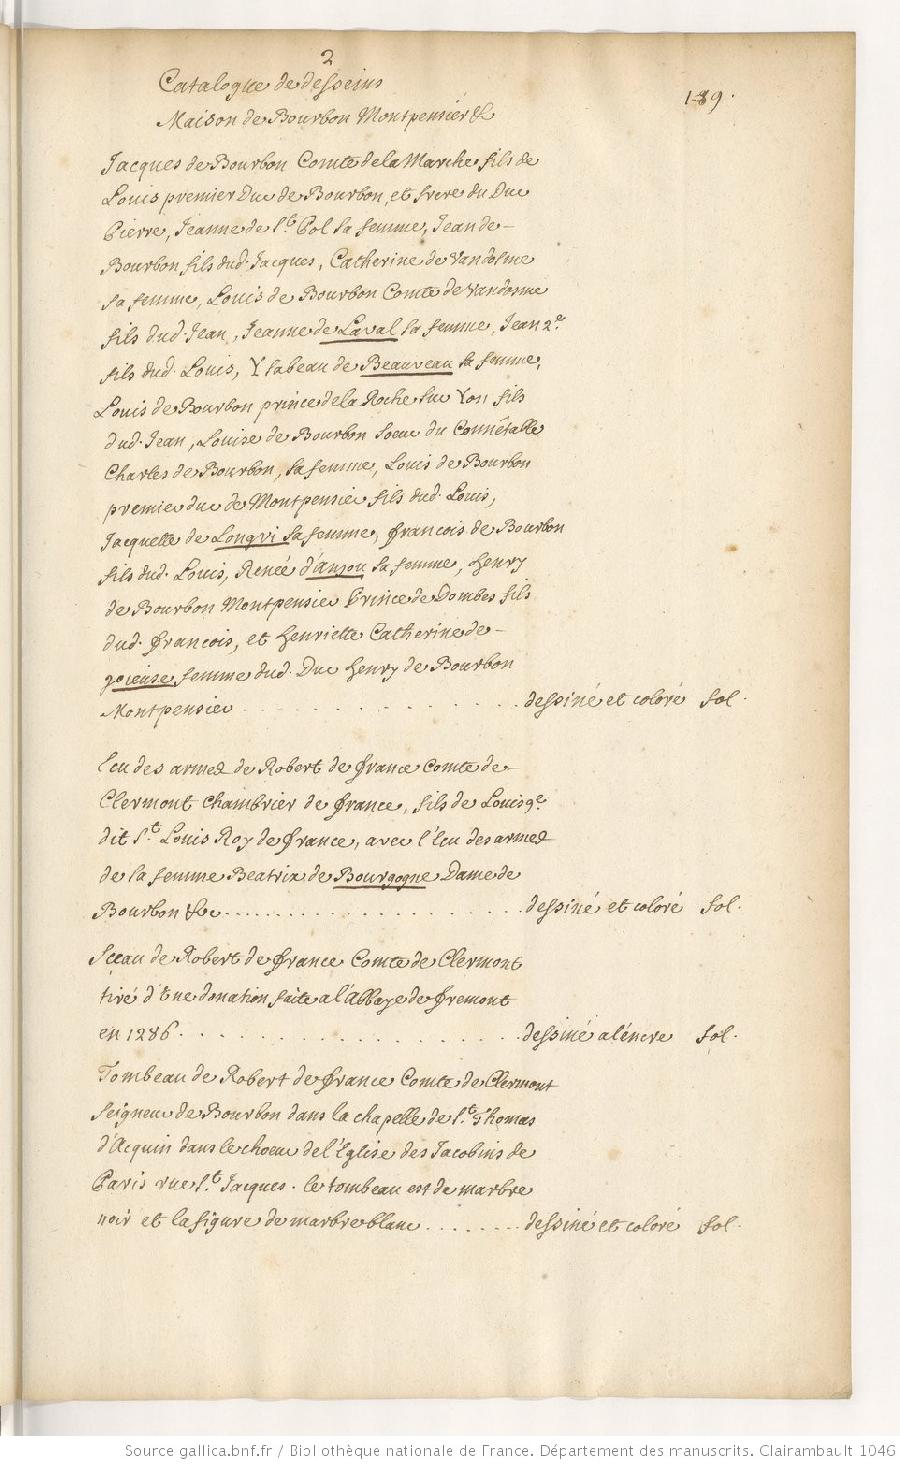 2
Catalogue de desseins
189.
Maison de Bourbon Montpensier &
Jacques de Bourbon Comte de la Marche, fils de
Louis premier Duc de Bourbon, et frere du Duc
Pierre, Jeanne de St. Pol sa femme, Jean de
Bourbon fils dud. Jacques, Catherine de Vandosme
sa femme, Louis de Bourbon Comte de Vandosme
fils dud. Jean, Jeanne de Laval sa femme, Jean 2e
fils dud. Louis, Ysabeau de Beauveau sa femme,
Louis de Bourbon prince de la Roche sur Yon fils
dud. Jean, Louise de Bourbon soeur du Connétable
Charles de Bourbon, sa femme, Louis de Bourbon
premier duc de Montpensier fils dud. Louis,
Jacquette de Longvi sa femme, françois de Bourbon
fils dud. Louis, Renée d'anjou sa femme, henry
de Bourbon Montpensier Prince de Dombes fils
dud. françois, et henriette Catherine de
joieuse femme dud. Duc henry de Bourbon
Montpensier . . . . . . . . . . dessiné et coloré fol.
Ecu des armes de Robert de france Comte de
Clermont Chambrier de france, fils de Louis 9e
dit St. Louis Roy de france, avec l'Ecu des armes
de la femme Beatrix de Bourgogne Dame de
Bourbon &c . . . . . . . . . . dessiné et coloré fol.
Sceau de Robert de france Comte de Clermont
tiré d'une donation faite a l'Abbaye de fremont
en 1286 . . . . . . . . . . dessiné a l'encre fol.
Tombeau de Robert de france Comte de Clermont
seigneur de Bourbon dans la chapelle de St. Thomas
d'Acquin dans le choeur de l'Eglise des Jacobins de
Paris rue St. Jacques. le tombeau est de marbre
noir et la figure de marbre blanc . . . . . . . dessiné et coloré fol.
Source gallica.bnf.fr / Bibliothèque nationale de France. Département des manuscrits. Clairambault 1046